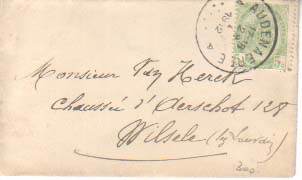 AUDENAERDE
Monsieur Van Kerck
Chaussée d'Aerschot 128
Wilsele (by Louvain)